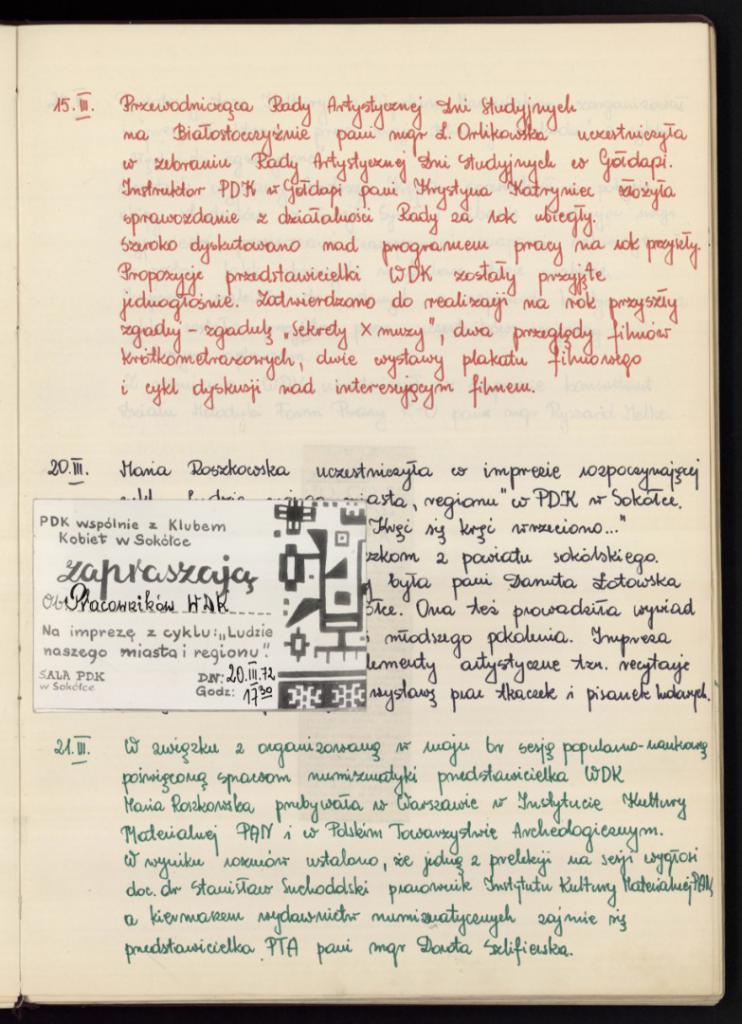 15.III. Przewodnicząca Rady Artystycznej Dni Studyjnych
na Białostocczyźnie pani mgr L. Orlikowska uczestniczyła
w zebraniu Rady Artystycznej Dni Studyjnych w Gołdapi.
Instruktor PDK w Gołdapi pani Krystyna Katryniec złożyła
sprawozdanie z działalności Rady za rok ubiegły.
Szeroko dyskutowano nad programem pracy na rok przyszły.
Propozycje przedstawicielki WDK zostały przyjęte
jednogłośnie. Zatwierdzono do realizacji na rok przyszły
zgaduj-zgadulę „Sekrety X muzy", dwa przeglądy filmów
krótkometrażowych, dwie wystawy plakatu filmowego
i cykl dyskusji nad interesującym filmem.
20.III. Maria Roszkowska uczestniczyła w imprezie rozpoczynającej
miasta, regionu" w PDK w Sokółce.
"Kręć się kręć wrzeciono..."
z powiatu sokólskiego.
była pani Danuta Łotowska
Ona też prowadziła wywiad
i młodszego pokolenia. Impreza
artystyczne tzn. recytacje
wystawą prac tkaczek i pisanek ludowych.
PDK wspólnie z Klubem
Kobiet w Sokółce
zapraszają
Ob. Pracowników WDK
Na imprezę z cyklu: „Ludzie
naszego miasta i regionu".
SALA PDK
w Sokółce
DN: 20.III.72
Godz: 17 30
21.III. W związku z organizowaną w maju br sesją popularno-naukową
poświęconą sprawom numizmatyki przedstawicielka WDK
Maria Roszkowska przebywała w Warszawie w Instytucie Kultury
Materialnej PAN i w Polskim Towarzystwie Archeologicznym.
W wyniku rozmów ustalono, że jedną z prelekcji na sesji wygłosi
doc. dr Stanisław Suchodolski pracownik Instytutu Kultury Materialnej PAN,
a kiermaszem wydawnictw numizmatycznych zajmie się
przedstawicielka PTA pani mgr Dorota Szlifierska.